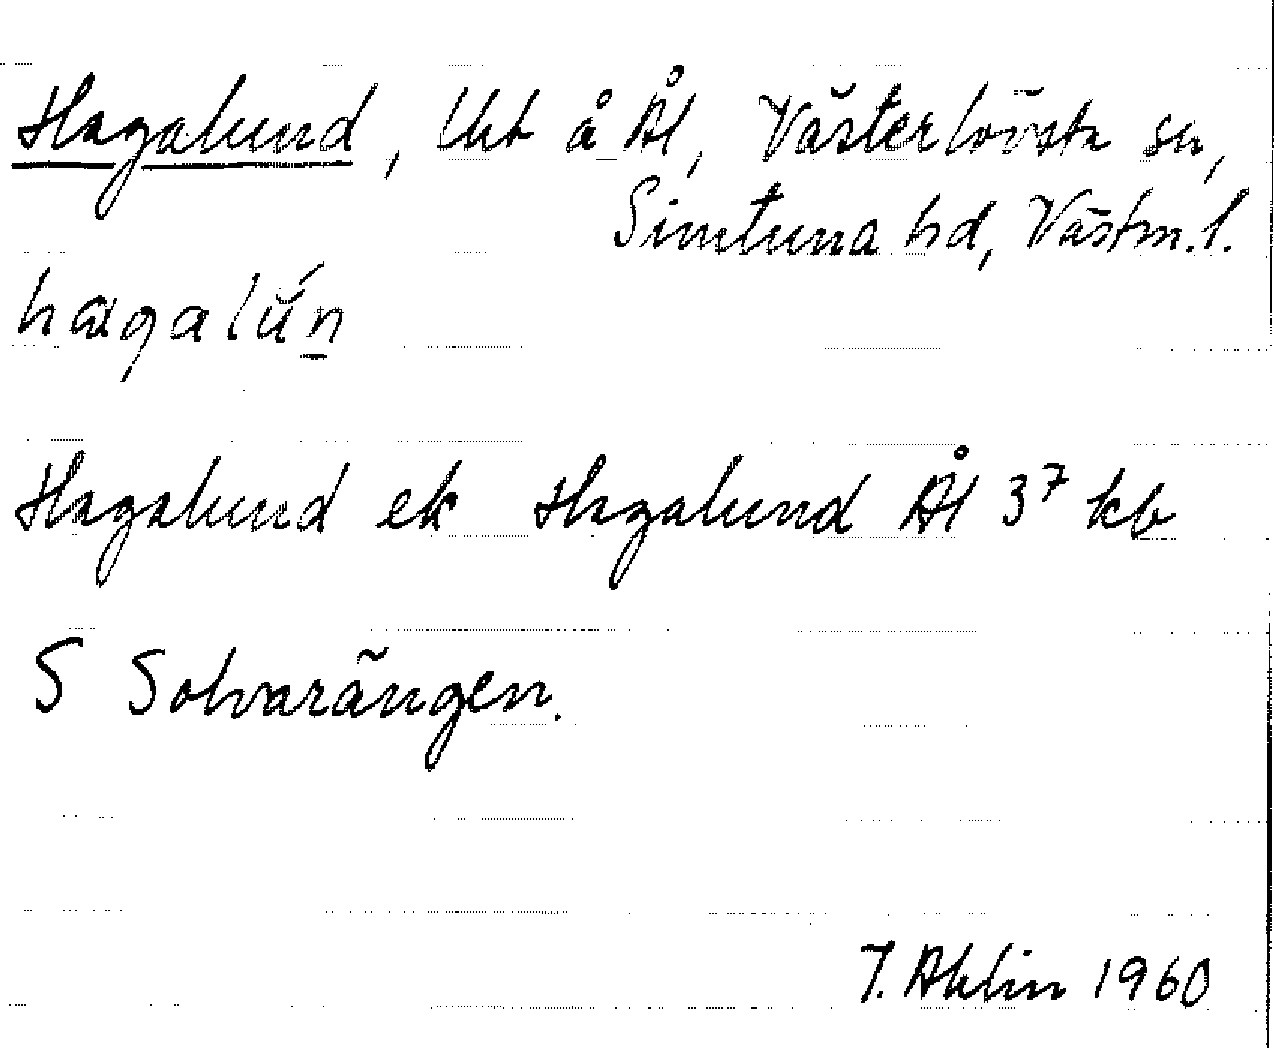 Hagalund, lht å Ål, Västerlövsta sn,
Simtuna hd, Västm. l.
hagalún
Hagalund ek Hagalund Ål 3⁷ kb
S Solvarängen.
T. Ahlin 1960